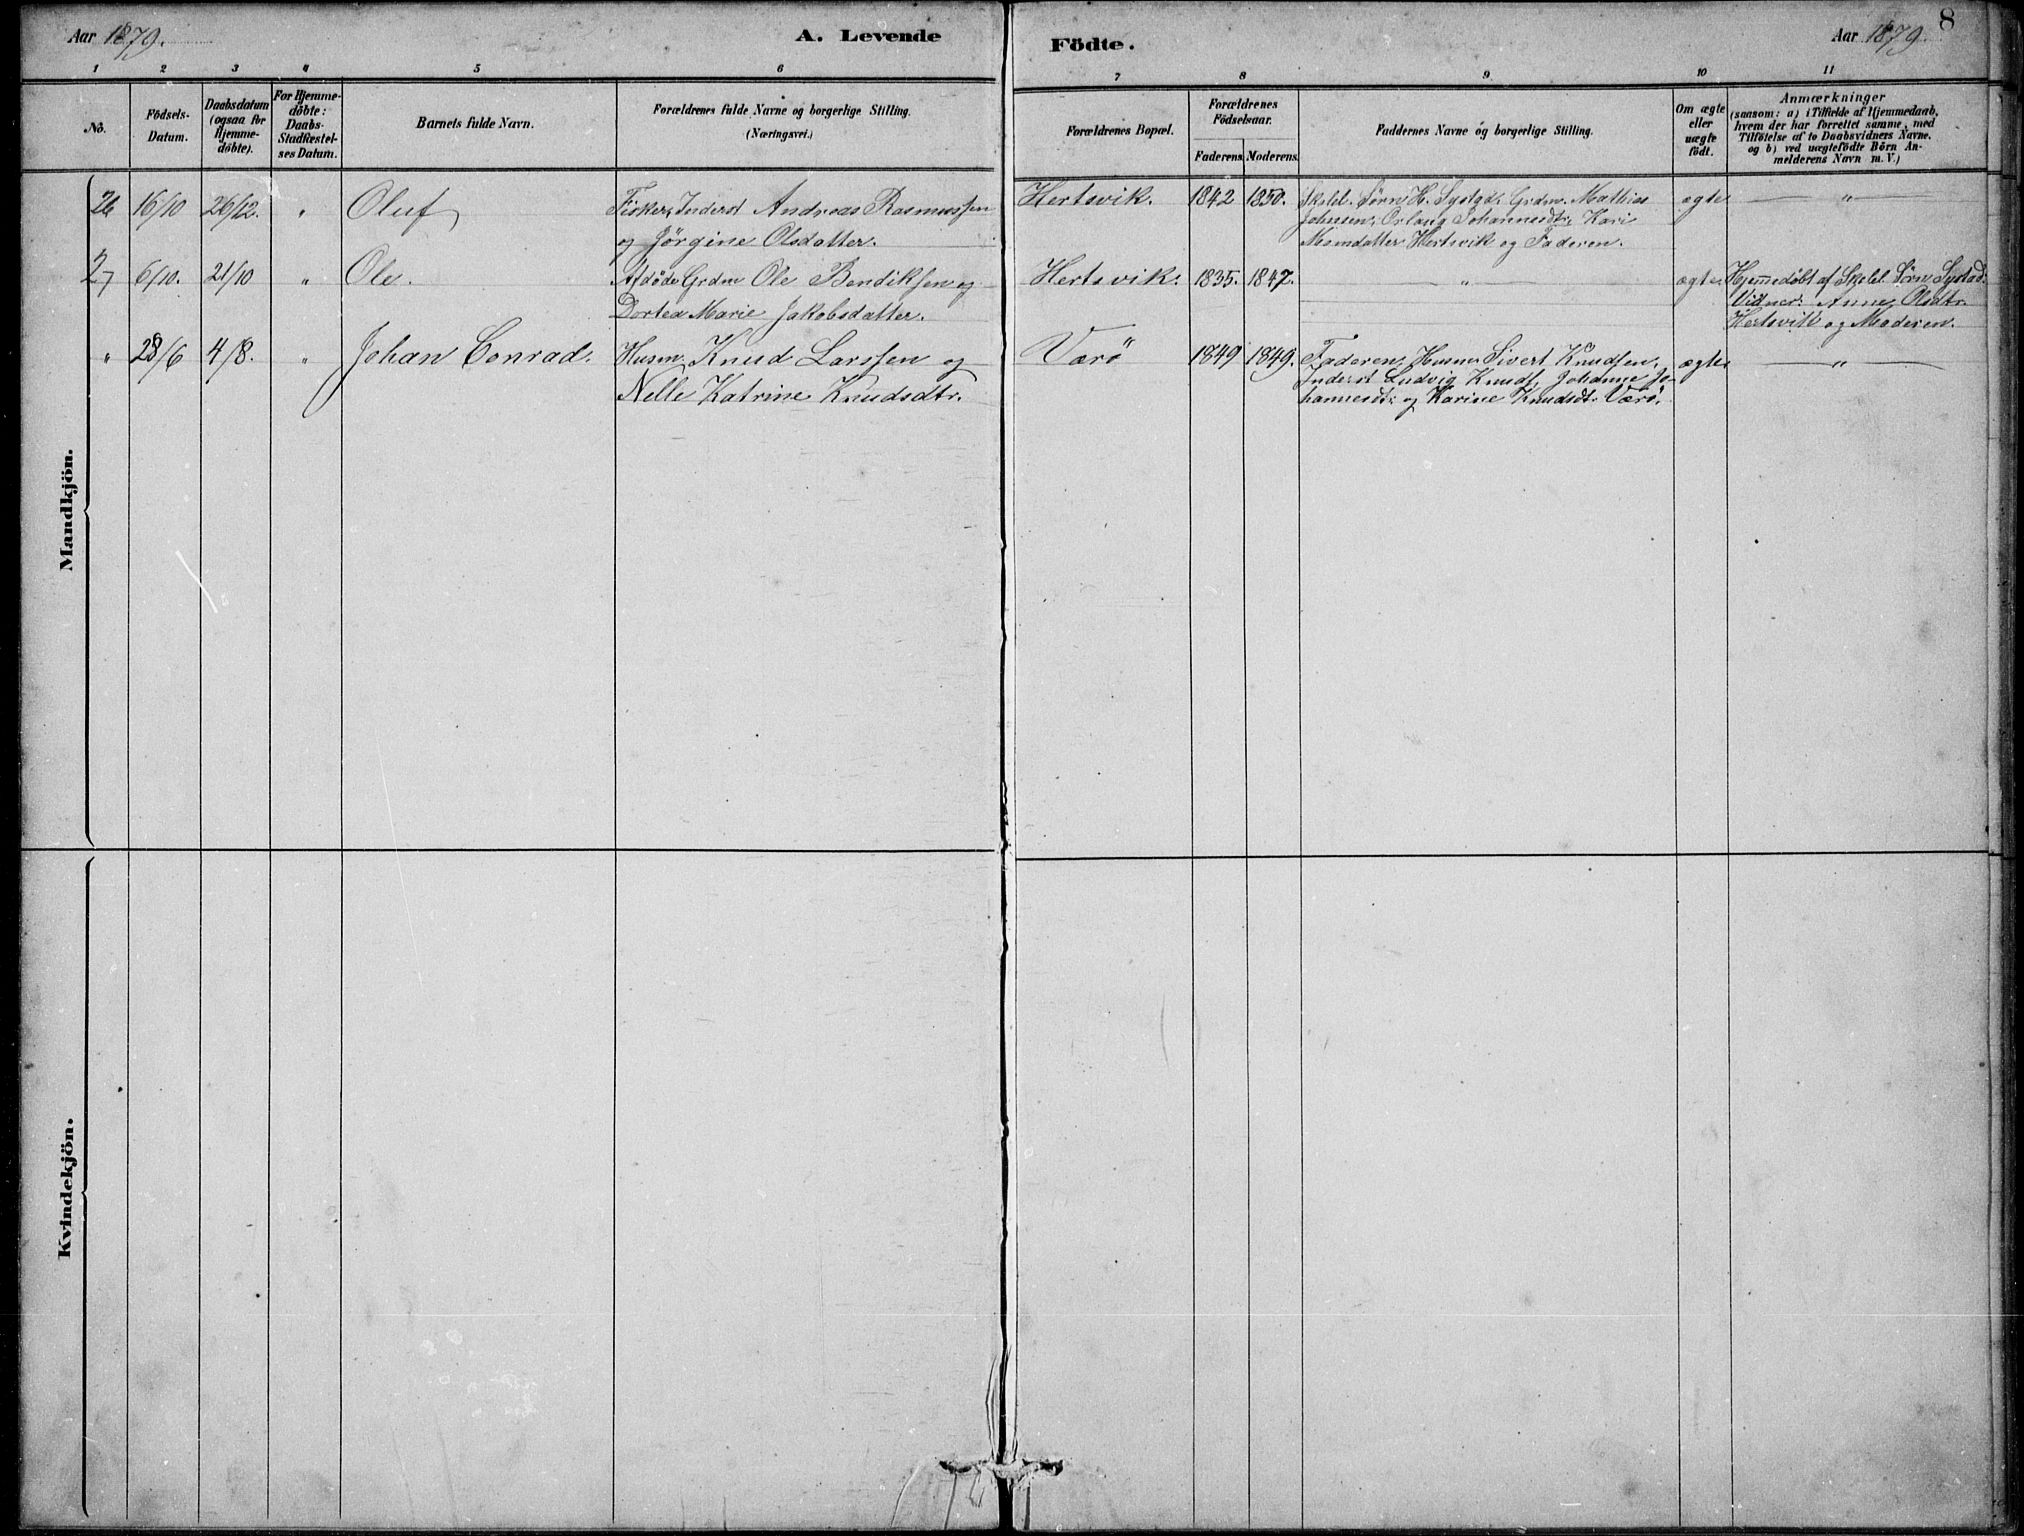 Aar 1879.
A. Levende
Födte.
Aar 1879.
8
1 2 3 4 5 6 7 8 9 10 11
No.
Födsels-
Datum.
Daabsdatum
(ogsaa for
Hjemme-
döbte).
For Hjemme-
döbte:
Daabs-
Stadfæstel-
ses Datum.
Barnets fulde Navn.
Forældrenes fulde Navne og borgerlige Stilling.
(Næringsvei.)
Forældrenes Bopæl.
Forældrenes
Födselsaar.
Faderens. Moderens.
Faddernes Navne og borgerlige Stilling.
Om ægte
eller
uægte
födt.
Anmærkninger
(saasom: a) i Tilfælde af Hjemmedaab,
hvem der har forrettet samme, med
Tilföielse af to Daabsvidners Navne,
og b) ved uægtefödte Börn An-
melderens Navn m. V.)
Mandkjön.
26 16/10 26/12. " Oluf
Fisker, Inderst Andreas Rasmussen
og Jörgine Olsdatter.
Hertsvik. 1842 1850.
Skolel. Sørn H. Systad, Grdm. Mathias
Johnsen, Johannesdtr, Kari
Monsdatter Hertsvik og Faderen.
ægte "
27 6/10. 21/10 " Ole.
Afdöde Grdm Ole Bendiksen og
Dortea Marie Jakobsdatter.
Hertsvik. 1835. 1847. "
ægte
Hjemmedøbt af Skolel. Sørn Systad.
Vidner: Anne Olsdtr.
Hertsvik og Moderen.
" 28/6 4/8. " Johan Conrad.
Husm. Knud Larssen og
Nelle Katrine Knudsdtr.
Værö 1849 1849.
Faderen, Husm Sivert Knudsen,
Inderst Ludvig Knuds, Johanne Jo-
hannesdt: og Karine Knudsdt. Værö.
ægte "
Kvindekjön.